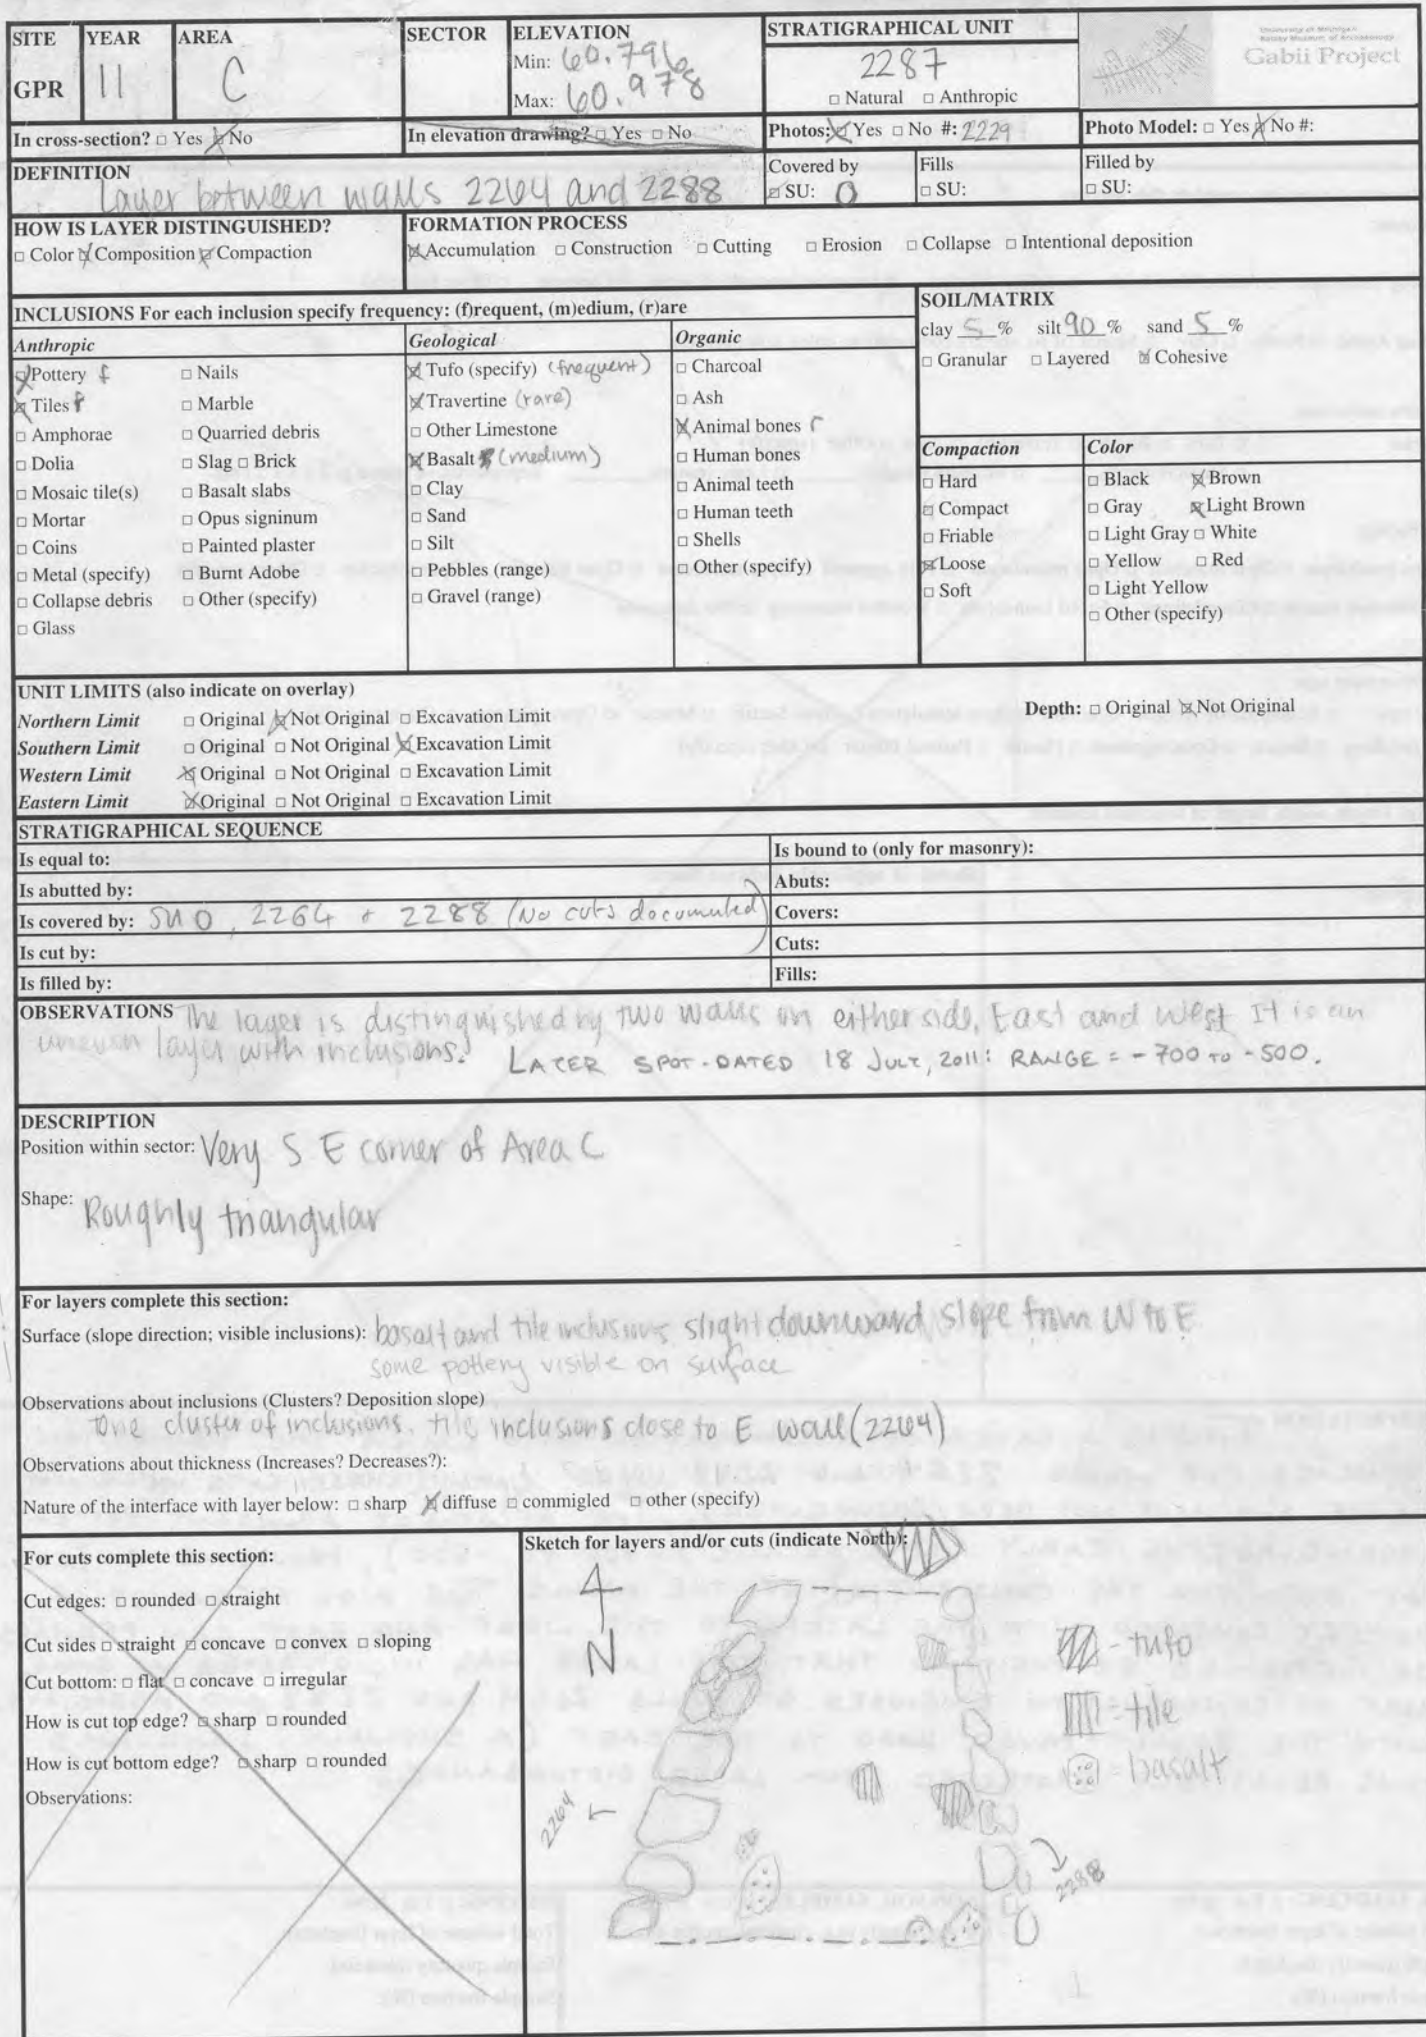 SITE YEAR AREA SECTOR ELEVATION STRATIGRAPHICAL UNIT
GPR 11 C Min: 60.796 2287
Max: 60.978 □ Natural □ Anthropic
University of Michigan
Kelsey Museum of Archaeology
Gabii Project
In cross-section? □ Yes ☒ No In elevation drawing? □ Yes □ No Photos: ☒ Yes □ No #: 2229 Photo Model: □ Yes ☒ No #:
DEFINITION Covered by Fills Filled by
Layer between walls 2264 and 2288 ☒ SU: 0 □ SU: □ SU:
HOW IS LAYER DISTINGUISHED? FORMATION PROCESS
□ Color ☒ Composition ☒ Compaction ☒ Accumulation □ Construction □ Cutting □ Erosion □ Collapse □ Intentional deposition
INCLUSIONS For each inclusion specify frequency: (f)requent, (m)edium, (r)are
Anthropic
☒ Pottery f □ Nails
☒ Tiles f □ Marble
□ Amphorae □ Quarried debris
□ Dolia □ Slag □ Brick
□ Mosaic tile(s) □ Basalt slabs
□ Mortar □ Opus signinum
□ Coins □ Painted plaster
□ Metal (specify) □ Burnt Adobe
□ Collapse debris □ Other (specify)
□ Glass
Geological
☒ Tufo (specify) (frequent)
☒ Travertine (rare)
□ Other Limestone
☒ Basalt (medium)
□ Clay
□ Sand
□ Silt
□ Pebbles (range)
□ Gravel (range)
Organic
□ Charcoal
□ Ash
☒ Animal bones r
□ Human bones
□ Animal teeth
□ Human teeth
□ Shells
□ Other (specify)
SOIL/MATRIX
clay 5 % silt 90 % sand 5 %
□ Granular □ Layered ☒ Cohesive
Compaction
□ Hard
□ Compact
□ Friable
☒ Loose
□ Soft
Color
□ Black ☒ Brown
□ Gray ☒ Light Brown
□ Light Gray □ White
□ Yellow □ Red
□ Light Yellow
□ Other (specify)
UNIT LIMITS (also indicate on overlay)
Northern Limit □ Original ☒ Not Original □ Excavation Limit Depth: □ Original ☒ Not Original
Southern Limit □ Original □ Not Original ☒ Excavation Limit
Western Limit ☒ Original □ Not Original □ Excavation Limit
Eastern Limit ☒ Original □ Not Original □ Excavation Limit
STRATIGRAPHICAL SEQUENCE
Is equal to: Is bound to (only for masonry):
Is abutted by: Abuts:
Is covered by: SU 0, 2264 + 2288 (No cuts documented) Covers:
Is cut by: Cuts:
Is filled by: Fills:
OBSERVATIONS The layer is distinguished by two walls on either side, East and West It is an
uneven layer with inclusions. LAYER SPOT-DATED 18 JULY, 2011: RANGE = -700 TO -500.
DESCRIPTION
Position within sector: Very S E corner of Area C
Shape: Roughly triangular
For layers complete this section:
Surface (slope direction; visible inclusions): basalt and tile inclusions slight downward slope from W to E
some pottery visible on surface
Observations about inclusions (Clusters? Deposition slope)
One cluster of inclusions. tile inclusions close to E wall (2264)
Observations about thickness (Increases? Decreases?):
Nature of the interface with layer below: □ sharp ☒ diffuse □ commigled □ other (specify)
For cuts complete this section:
Cut edges: □ rounded □ straight
Cut sides □ straight □ concave □ convex □ sloping
Cut bottom: □ flat □ concave □ irregular
How is cut top edge? □ sharp □ rounded
How is cut bottom edge? □ sharp □ rounded
Observations:
Sketch for layers and/or cuts (indicate North):
N
- tufo
= tile
= basalt
2264
2288